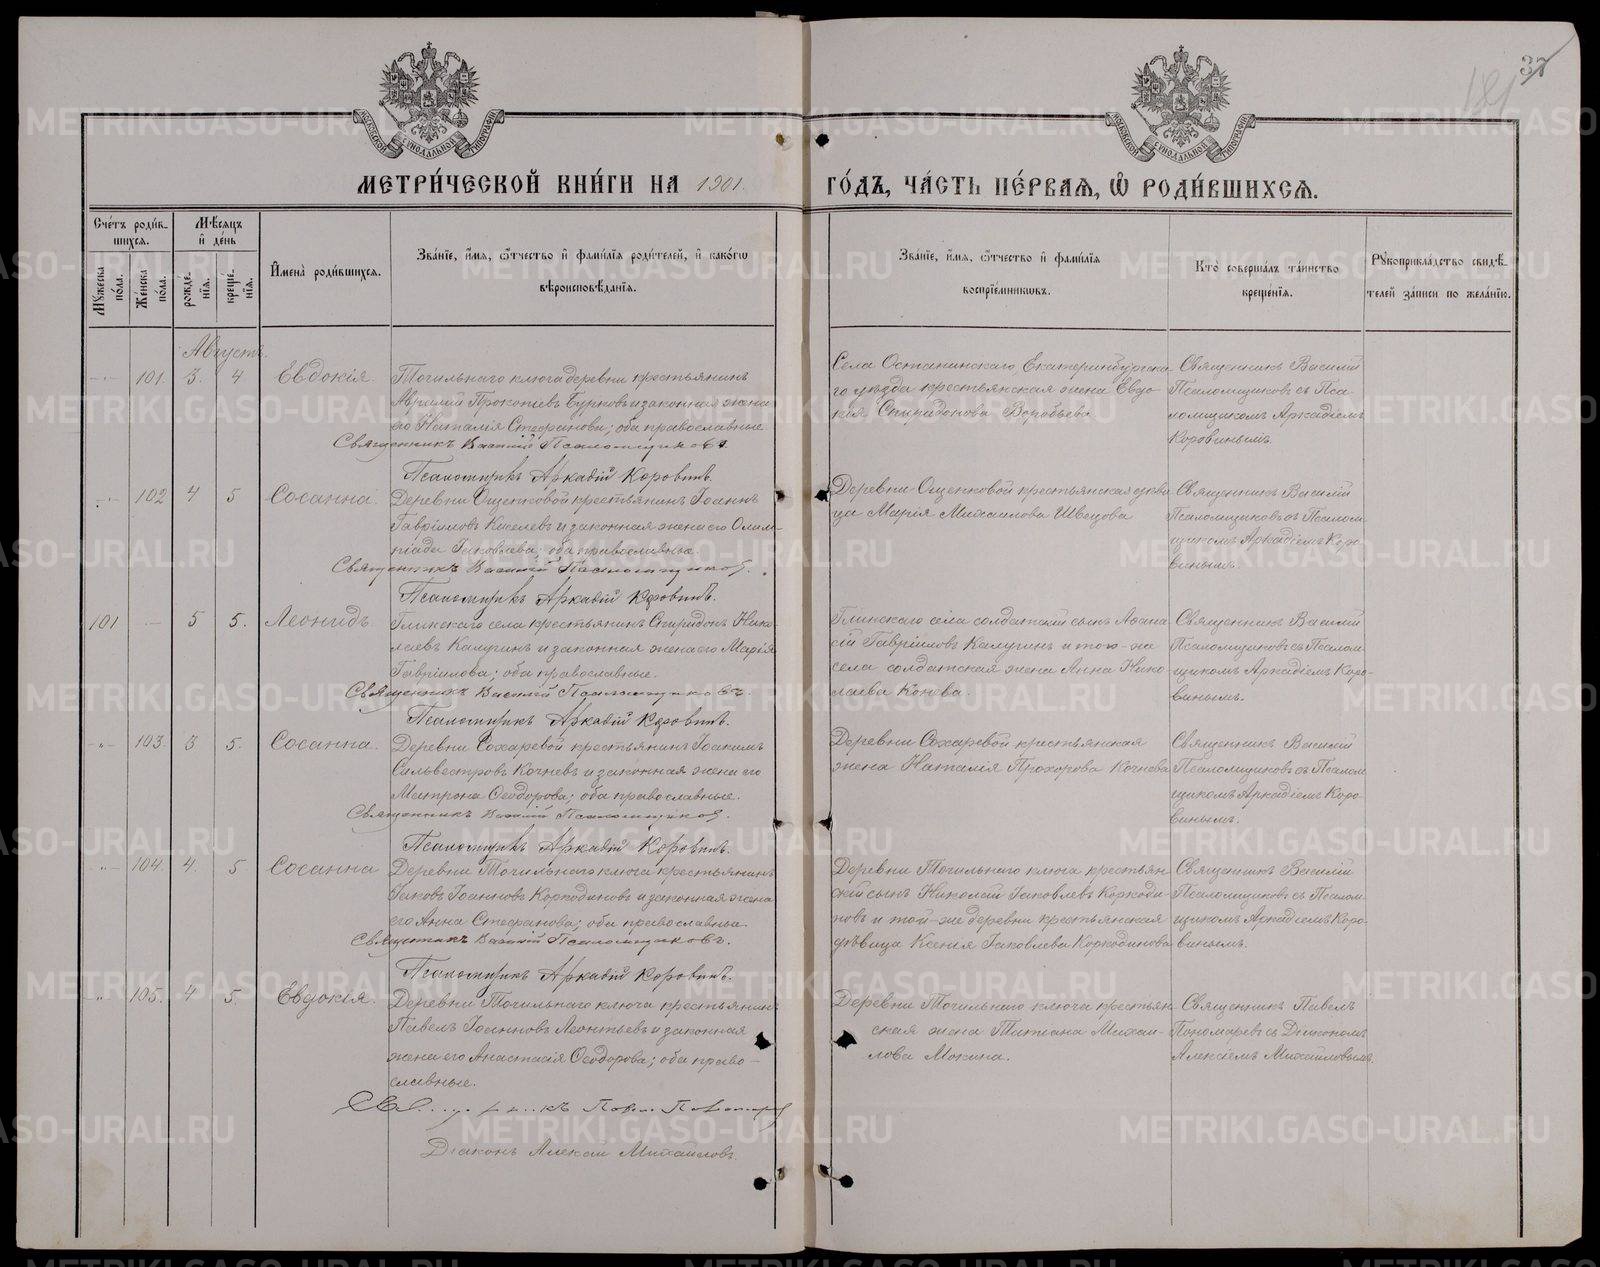 181 37
МОСКОВСКОЙ СѴНОДАЛЬНОЙ ТИПОГРАФІИ
МОСКОВСКОЙ СѴНОДАЛЬНОЙ ТИПОГРАФІИ
МЕТРИ́ЧЕСКОЙ КНИ́ГИ НА 1901.
ГО́ДЪ, ЧА́СТЬ ПЕ́РВАѦ, Ѡ҆ РОДИ́ВШИХСѦ.
Сче́тъ роди́в-
шихсѧ.
Мꙋжеска по́ла.
Же́нска по́ла.
Мѣ́сѧцъ
и҆ де́нь
рожде́-
нїѧ.
креще́-
нїѧ.
И҆мена̀ роди́вшихсѧ.
Зва́нїе, и҆́мѧ, ѻ҆́тчество и҆ фамилїѧ роди́телей, и҆ како́гѡ
вѣроисповѣ́данїѧ.
Зва́нїе, и҆́мѧ, ѻ҆́тчество и҆ фамилїѧ
воспрїе́мникѡвъ.
Кто̀ соверша́лъ та́инство
креще́нїѧ.
Рꙋкоприкла́дство свидѣ́-
телей за́писи по жела́нїю.
Августъ.
101. 3. 4 Евдокія.
Точильнаго ключа деревни крестьянинъ
Аврамій Прокопьевъ Бурковъ и законная жена
его Наталія Стефанова; оба православные
Священникъ Василій Псаломщиковъ.
Псаломщикъ Аркадій Коровинъ.
Села Останинскаго Екатеринбургска
го уѣзда крестьянская жена Евдо
кія Спиридонова Воробьева.
Священникъ Василій
Псаломщиковъ съ Пса
ломщикомъ Аркадіемъ
Коровинымъ.
102 4 5 Сосанна.
Деревни Ощепковой крестьянинъ Іоаннъ
Гавріиловъ Киселевъ и законная жена его Олим-
піада Іаковлева; оба православные.
Священникъ Василій Псаломщиковъ.
Псаломщикъ Аркадій Коровинъ.
Деревни Ощепковой крестьянская дѣви
ца Марія Михаилова Швецова
Священникъ Василій
Псаломщиковъ съ Псалом
щикомъ Аркадіемъ Коро
винымъ.
101 5 5. Леонидъ
Глинскаго села крестьянинъ Спиридонъ Нико
лаевъ Калугинъ и законная жена его Марія
Гавріилова; оба православные.
Священникъ Василій Псаломщиковъ.
Псаломщикъ Аркадій Коровинъ.
Глинскаго села солдатскій сынъ Афана
сій Гавріиловъ Калугинъ и того-же
села солдатская жена Анна Нико
лаева Конова.
Священникъ Василій
Псаломщиковъ съ Псалом
щикомъ Аркадіемъ Коро-
винымъ.
-„- 103. 3 5. Сосанна.
Деревни Сохаревой крестьянинъ Іоакимъ
Сильвестровъ Кочневъ и законная жена его
Матрона Ѳеодорова; оба православные.
Священникъ Василій Псаломщиковъ.
Псаломщикъ Аркадій Коровинъ.
Деревни Сохаревой крестьянская
жена Наталія Прохорова Кочнева
Священникъ Василій
Псаломщиковъ съ Псалом
щикомъ Аркадіемъ Коро-
винымъ.
-„- 104. 4. 5 Сосанна
Деревни Точильнаго ключа крестьянинъ
Іаковъ Іоанновъ Коркодиновъ и законная жена
его Анна Стефанова; оба православные.
Священникъ Василій Псаломщиковъ.
Псаломщикъ Аркадій Коровинъ.
Деревни Точильнаго ключа крестьян-
скій сынъ Николай Іаковлевъ Коркоди
новъ и той-же деревни крестьянская
дѣвица Ксенія Іаковлева Коркодинова
Священникъ Василій
Псаломщиковъ съ Псалом-
щикомъ Аркадіемъ Коро-
винымъ.
„ 105. 4 5. Евдокія.
Деревни Точильнаго ключа крестьянинъ
Павелъ Іоанновъ Леонтьевъ и законная
жена его Анастасія Ѳеодорова; оба право-
славные.
Священникъ Павелъ Пономаревъ
Діаконъ Алексій Михайловъ.
Деревни Точильнаго ключа крестьян
ская жена Татіана Михаи-
лова Мокина.
Священникъ Павелъ
Пономаревъ съ Діакономъ
Алексіемъ Михайловымъ.
METRIKI.GASO-URAL.RU